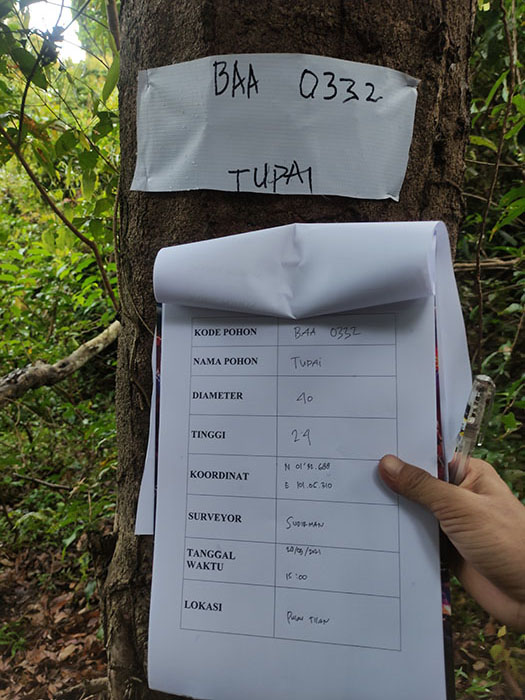 BAA 0332
TUPAI
KODE POHON BAA 0332
NAMA POHON TUPAI
DIAMETER 40
TINGGI 24
KOORDINAT
E 101.05.710
SURVEYOR SUDIRMAN
TANGGAL
WAKTU 15:00
LOKASI